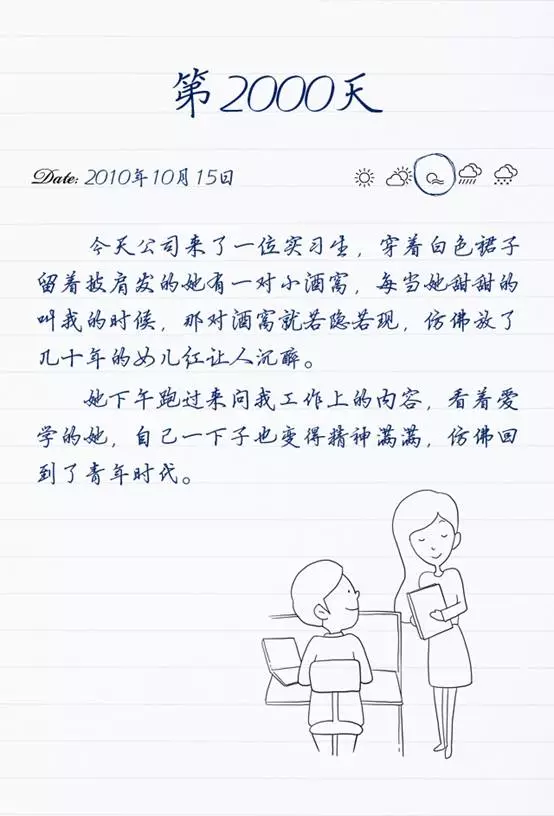 第2000天
Date: 2010年10月15日
今天公司来了一位实习生，穿着白色裙子
留着披肩发的她有一对小酒窝，每当她甜甜的
叫我的时候，那对酒窝就若隐若现，仿佛放了
几十年的女儿红让人沉醉。
她下午跑过来问我工作上的内容，看着爱
学的她，自己一下子也变得精神满满，仿佛回
到了青年时代。